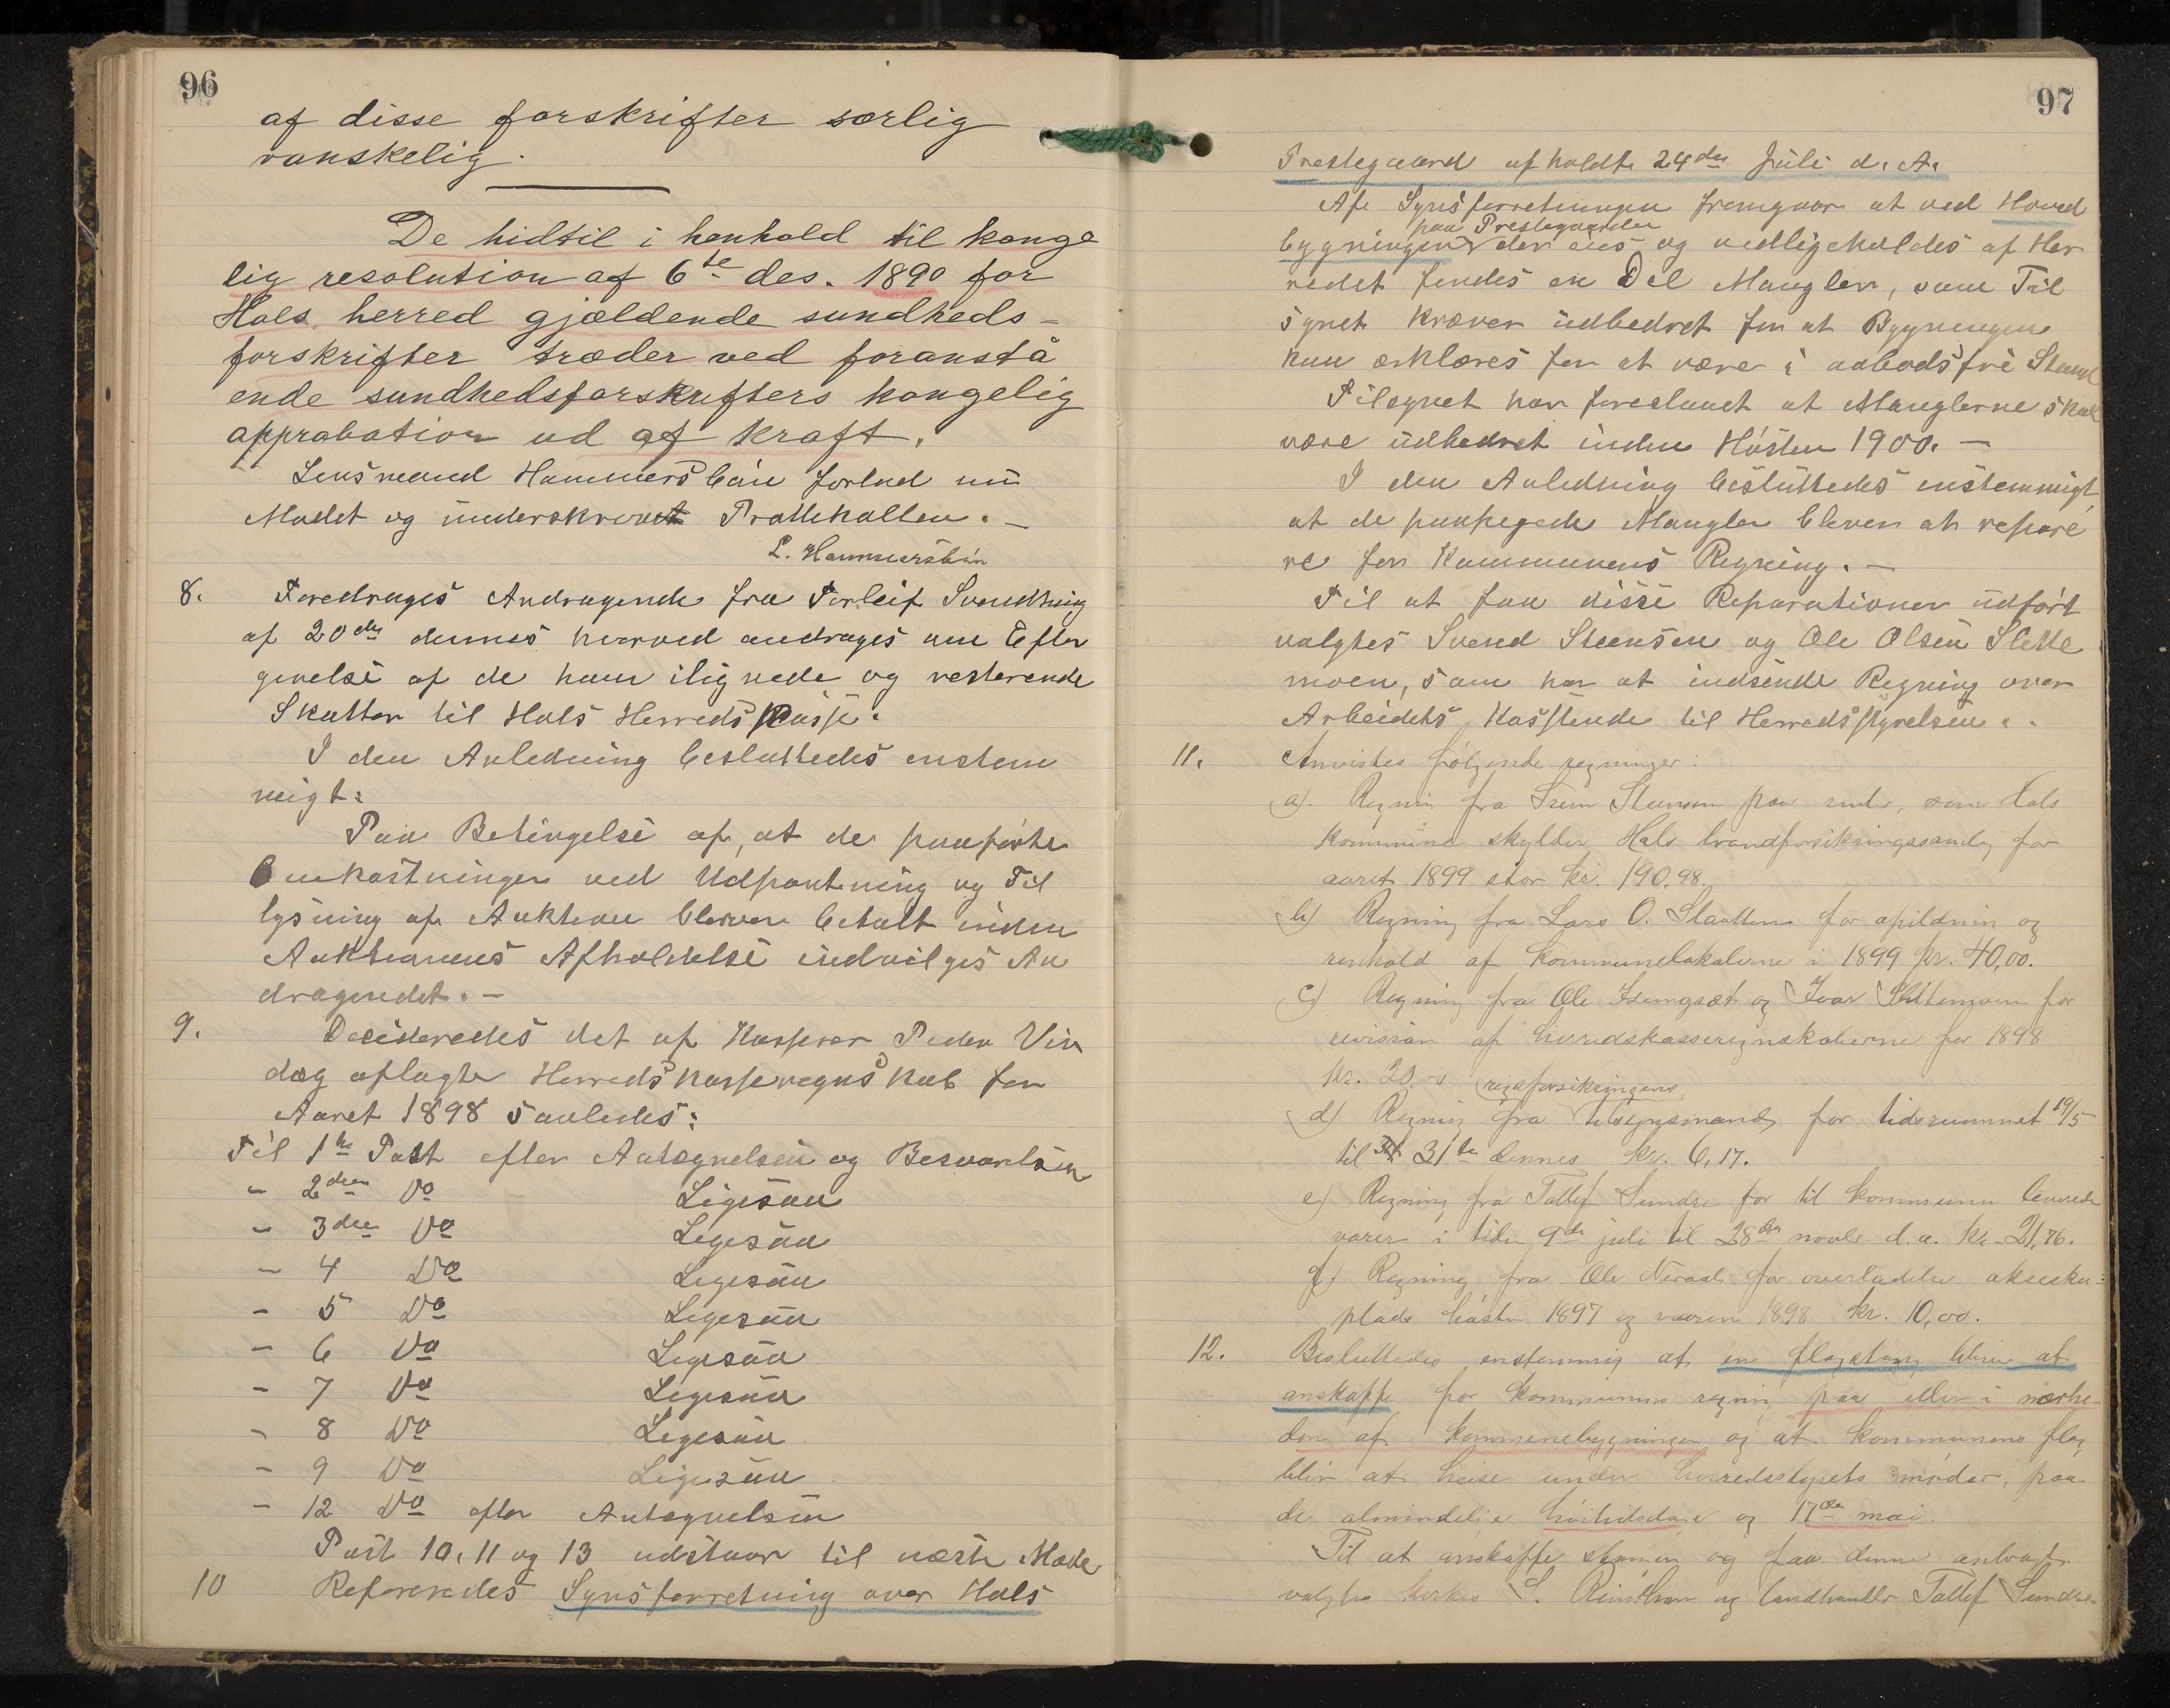 96
af disse forskrifter særlig
vanskelig.
De hidtil i henhold til konge
lig resolution af 6te des. 1890 for
Hols herred gjældende sundheds-
forskrifter træder ved foranstå
ende sundhedsforskrifters kongelig
approbation ud af kraft.
Lensmand Hammersbøin forlod nu
Mødet og underskrevet Prottekollen. —
L. Hammersbøin
8. Foredrages Andragende fra Torleif Svendthing
af 20de dennes hvorved andrages om Efter
givelse af de ham ilignede og resterende
Skatter til Hols Herredskasse.
I den Anledning besluttedes enstem
migt:
Paa Betingelse af, at de paaførte
Omkostninger ved Udpantning og Til
lysning af Auktion bliver betalt inden
Auktionens Afholdelse indvilges An
dragendet. —
9. Decideredes det af Kasserer Peder Vin
dag aflagte Herredskasseregnskab for
Aaret 1898 saaledes:
Til 1te Post efter Antegnelsen og Besvarelsen
- 2den Do Ligesaa
- 3die Do Ligesaa
- 4 Do Ligesaa
- 5 Do Ligesaa
- 6 Do Ligesaa
- 7 Do Ligesaa
- 8 Do Ligesaa
- 9 Do Ligesaa
- 12 Do efter Antegnelsen
Post 10, 11 og 13 udstaar til næste Møde
10 Refereredes Synsforretning over Hols
97
Prestegaard afholdt 24de Juli d. A.
Af Synsforretningen fremgaar at ved Hoved
paa Prestegaarden
bygningen der eies og vedligeholdes af Her
redet findes en Del Mangler, som Til
synet kræver udbedret for at Bygningen
kan erklæres for at være i aabodsfri Stand
Tilsynet har foreslaaet at Manglerne skal
være udbedret inden Høsten 1900. —
I den Anledning besluttedes enstemmigt,
at de paapegede Mangler bliver at repare
re for Kommunens Regning. —
Til at faa disse Reparationer udført
valgtes Svend Steensen og Ole Olsen Slette
moen, som har at indsende Regning over
Arbeidets Kosstende til Herredsstyrelsen.
11. Anvistes følgende regninger:
a). Regning fra Steensen paa renter, som Hols
kommune skylder Hols brandforsikringssamlg for
aaret 1899 stor kr. 190.98.
b) Regning fra Lars O. Slaatten for opildning og
renhold af kommunelokalerne i 1899 kr. 40,00.
c) Regning fra Ole og Ivar Slettemoen for
revision af herredskasseregnskaberne for 1898
kr. 20,00
rigsforsikringens
d) Regning fra tilsynsmand for tidsrummet 19/5
til 31te dennes kr. 6,17.
e) Regning fra Tollef Sundre for til kommunen leverede
varer i tiden 9de juli til 28de novbr. d. a. kr. 21,76.
f) Regning fra Ole Neraal for overladelse
plads høsten 1897 og vaaren 1898 kr. 10,00.
12. Besluttedes enstemmig at en flagstang bliver at
anskaffe for kommunens regning paa eller i nærhe-
den af kommunebygningen og at kommunens flag
blir at heise under herredsstyrets møder, paa
de almindelige høitidsdage og 17de mai.
Til at anskaffe stangen og faa denne anbragt
valgtes og landhandler Tollef Sundre.